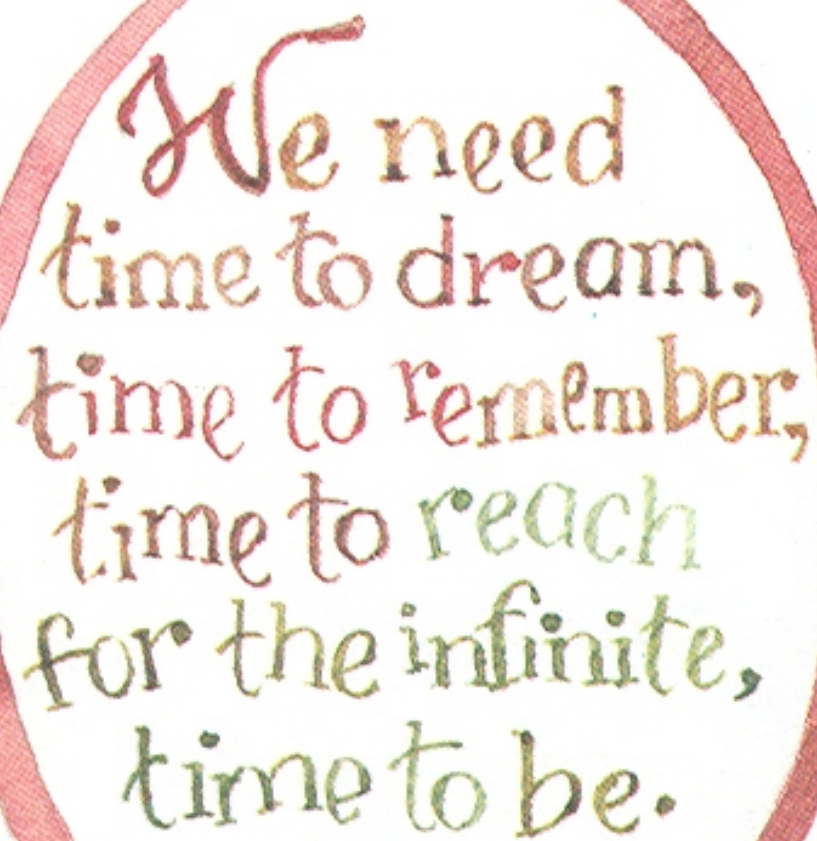 We need
time to dream,
time to remember,
time to reach
for the infinite,
time to be.